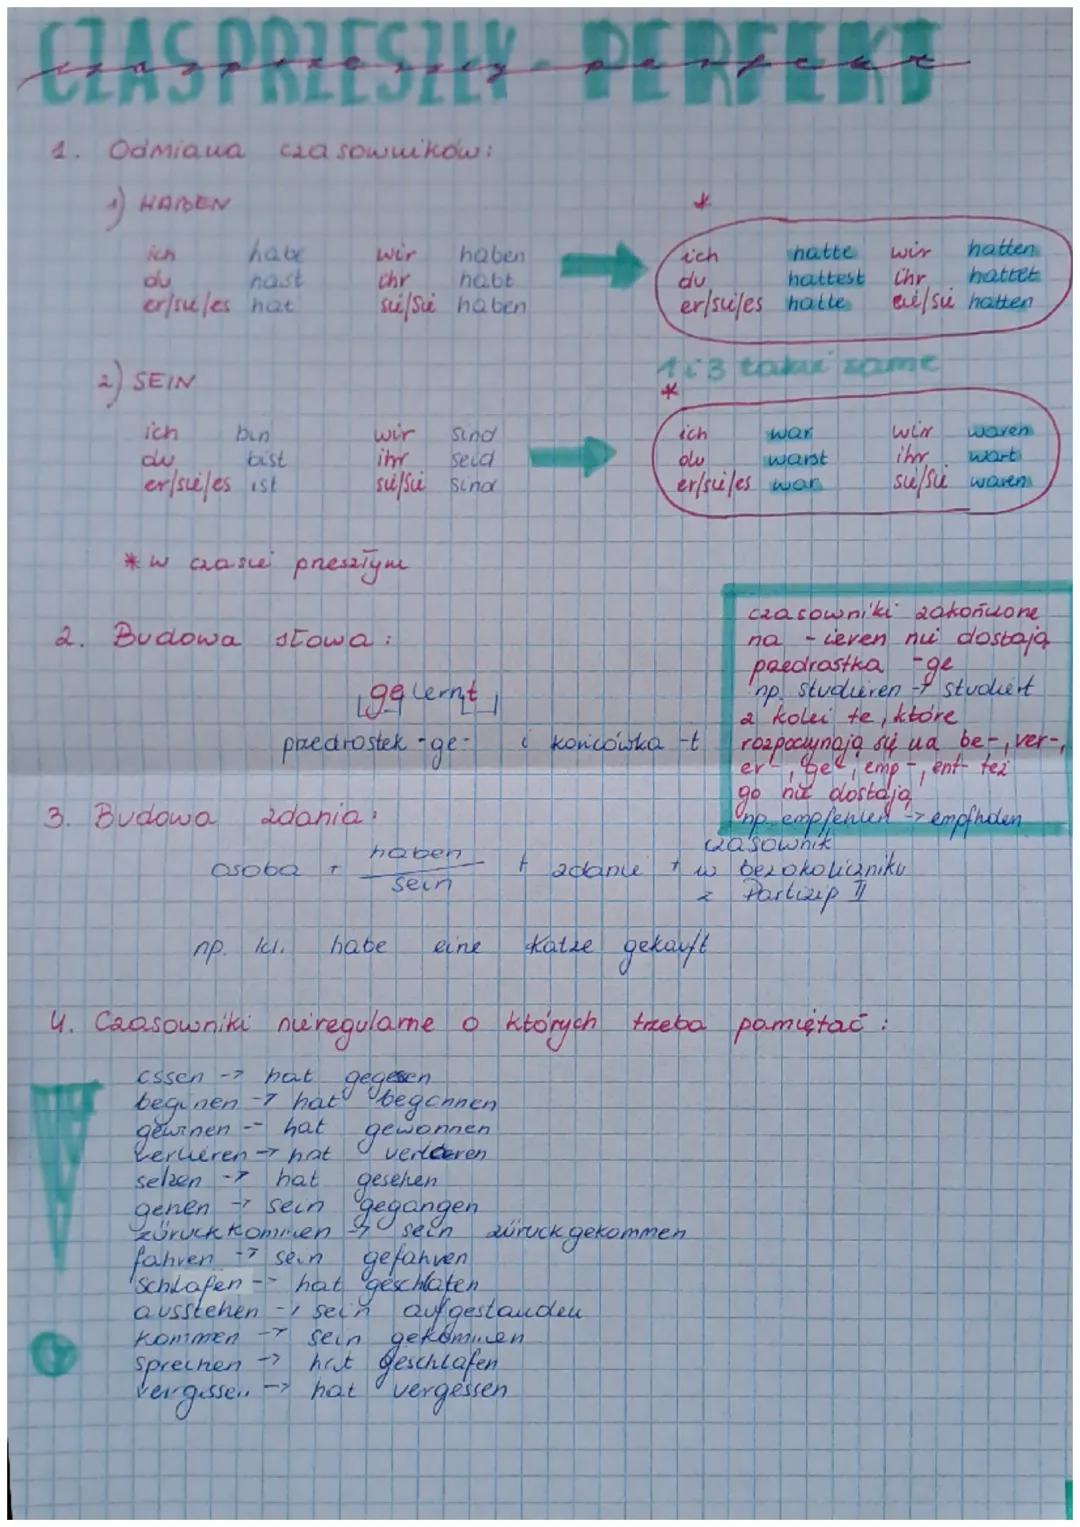 CZAS PRZESZŁY - PERFEKT
czas przeszły - perfekt
1. Odmiana czasowników:
1) HABEN
*
ich habe wir haben ich hatte wir hatten
du hast ihr habt du hattest ihr hattet
er/sie/es hat sie/Sie haben er/sie/es hatte sie/Sie hatten
1 i 3 takie same
2) SEIN
*
ich bin wir sind ich war wir waren
du bist ihr seid du warst ihr wart
er/sie/es ist sie/Sie sind er/sie/es war sie/Sie waren
* w czasie przeszłym
czasowniki zakończone
na -ieren nie dostają
przedrostka -ge
np. studieren → studiert
z kolei te, które
rozpoczynają się na be-, ver-,
er-, ge-, emp-, ent- też
go nie dostają
np. empfehlen → empfholen
2. Budowa słowa:
gelernt
przedrostek -ge- i końcówka -t
3. Budowa zdania:
osoba + haben / sein + zdanie + czasownik
w bezokoliczniku
z Partizip II
np. Ich habe eine Katze gekauft
4. Czasowniki nieregularne o których trzeba pamiętać:
essen -> hat gegesen
beginen -> hat begonnen
gewinen -- hat gewonnen
verlieren -> hat verloren
sehen -> hat gesehen
gehen -> sein gegangen
zürück kommen -> sein zürück gekommen
fahren -> sein gefahren
schlafen -- hat geschlafen
ausstehen -> sein aufgestanden
kommen -> sein gekommen
sprechen -> hat geschlafen
vergessen -> hat vergessen